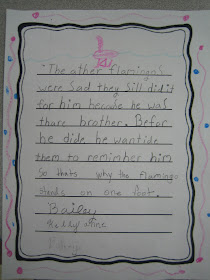 "The other flamingos
were sad they sill did it
for him because he was
thare brother. Befor
he dide he wantide
them to remimber him
So thats why the flamingo
stands on one foot.
Bailey